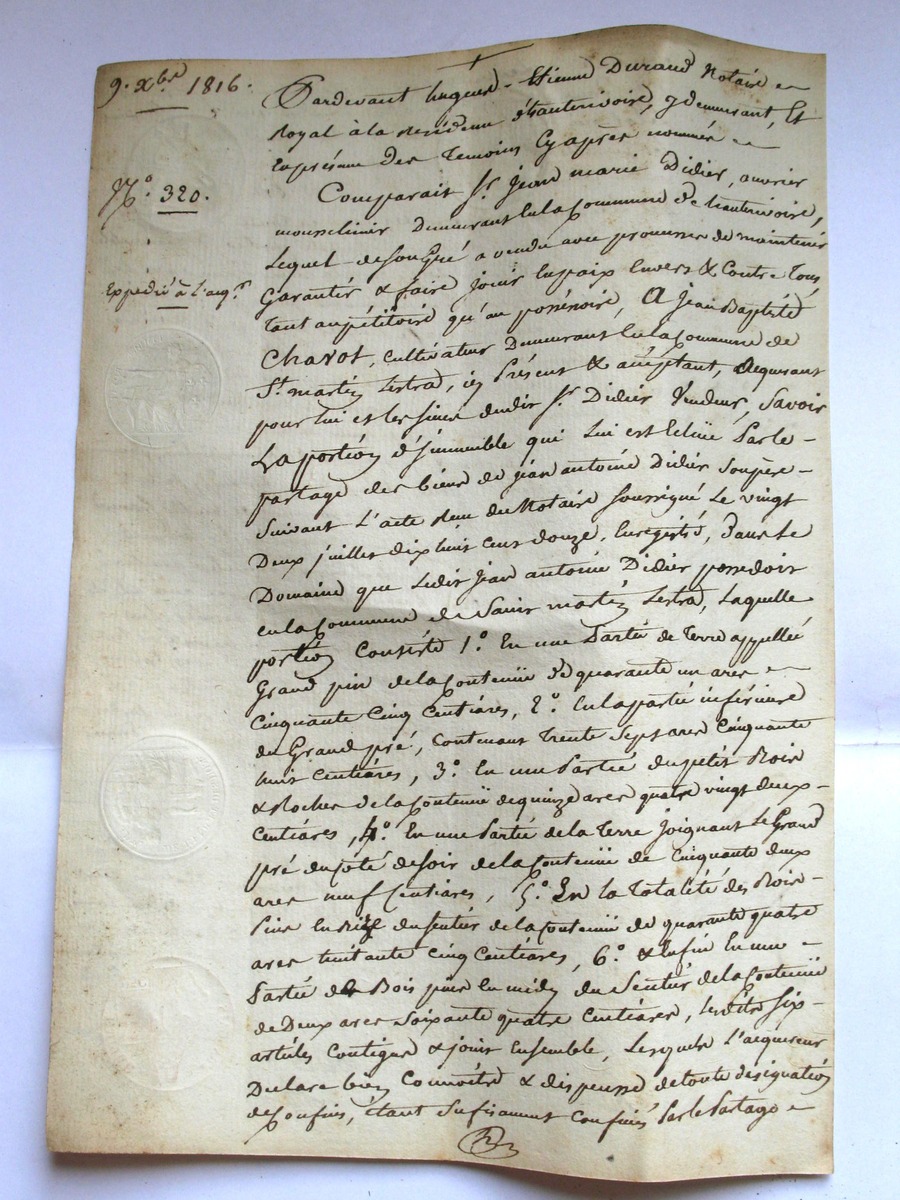 9. Xbre 1816.
N.º 320.
Expédié à l'acq.r
Pardevant hugues-Etienne Durand Notaire
royal à la residence d'hauterivoire, y demeurant, Et
Enprésence des Temoins Cy après nommés
Comparait Sr. Jean marie Didier, ouvrier
mousselinier Demeurant Enla Commune de hauterivoire,
Lequel de Son Gré a vendu avec promesse de maintenir
Garantir & faire jouir Enpaix Envers & Contre Tous,
Tant au pétitoire qu'au possessoire, A Jean Baptiste
Chavot, Cultivateur Demeurant Enla Commune de
St. martin Lestrad, icy Présent & acceptant, acquerant
pour lui et les siens dudit Sr. Didier Vendeur, Savoir
La portion d'immeuble qui Lui est Echüe Par le
partage des biens de jean antoine Didier Son père
Suivant L'acte reçu du Notaire Soussigné Le vingt
Deux juillet dix huit cent douze, Enregistré, Dans Le
Domaine que Ledit Jean antoine Didier possedoit
en la Commune de Saint martin Lestrad, Laquelle
portion Consiste 1.º En une Partie de Terre appellée
Grand pin de la Contenüe de quarante un ares
Cinquante Cinq Centiares, 2.º En la partie inférieure
du Grand pré, Contenant Trente Sept ares Cinquante
huit Centiares, 3.º En une Partie du petit Bois
& Rocher de la Contenüe de quinze ares quatre vingt deux
Centiares, 4.º En une Partie de la Terre joignant Le Grand
pré du Côté de Soir de la Contenüe de Cinquante deux
ares neuf Centiares, 5.º En la Totalité des Bois
Pins En du Sentier de la Contenüe de quarante quatre
ares huitante cinq Centiares, 6.º & Enfin En une
Partie de Bois pins En midy du Sentier de la Contenüe
de Deux ares Soixante quatre Centiares, Lesdits Six
articles Contigus & joints Ensemble, Lesquels L'acquereur
Declare bien Connoitre & dispense de toute designation
de Confins, étant Sufisament Confinés Par le Partage